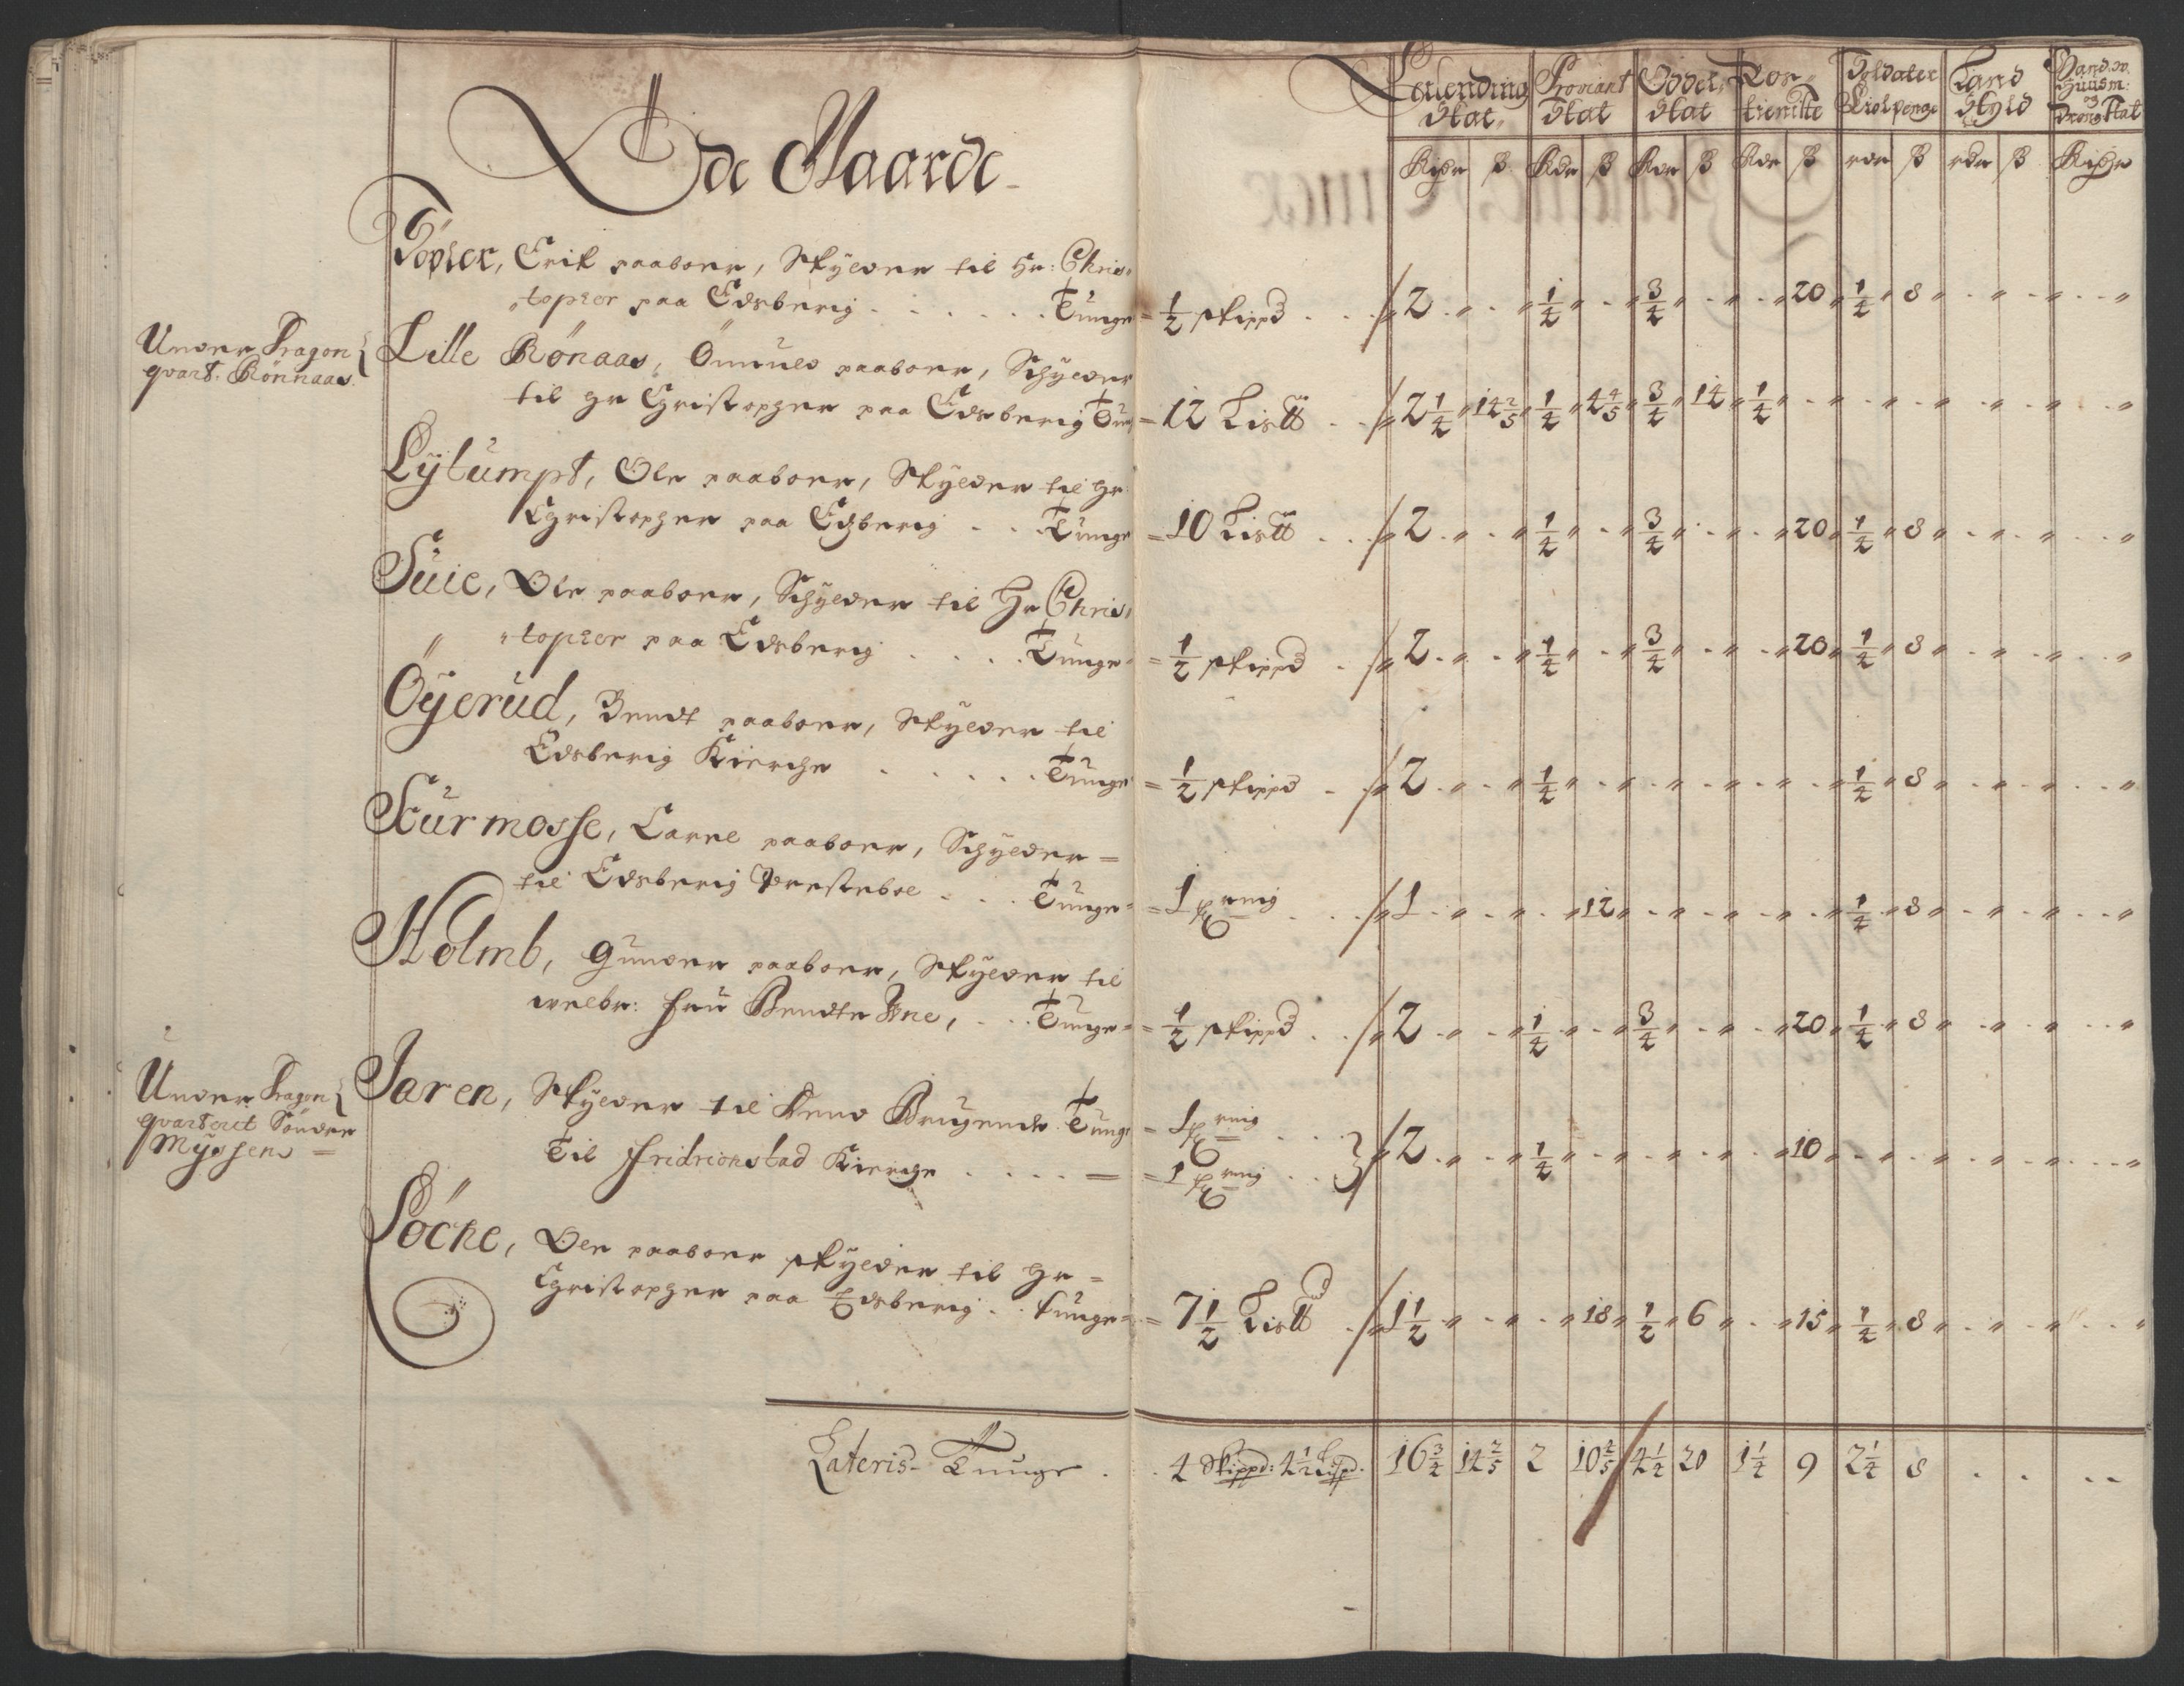 Øde Gaarde
Leilending Skat | Proviant Skat | Oddels Skat | Ros tieniste | Soldater Kiolpenge | Land Skyld | Huusm: og Dreng Skat
Rixdr ß | Rdr ß | Rdr ß | Rdr ß | rdr ß | rdr ß | Rixdr
Töpler, Erik paaboer, Skylder til Hr: Chris-
topher paa Edsberig . . . . . . Tunge = ½ skippd . . 2 . . ¼ . ¾ . . 20 ¼ 8
Under Dragon
qvart. Rönnaas.
Lille Rönaas, Ömund paaboer, Schylder
til Hr Christopher paa Edsberig Tung = 12 Lis℔ . . 2¼ 14⅖ ¼ 4⅘ ¾ 14 ¼
Lytumpt, Ole paaboer, Skylder til Hr
Christopher paa Edsberig . . Tunge = 10 Lis℔ . . 2 . . ¼ . ¾ . . 20 ¼ 8
Suie, Ole paaboer, Schylder til Hr Chris-
topher paa Edsberig . . . . Tunge = ½ skippd . 2 . . ¼ . ¾ . . 20 ¼ 8
Öyerud, Bendt paaboer, Skylder til
Edsberig Kierche . . . . . Tunge = ½ skippd . 2 . . ¼ . . . . . ¼ 8
Skurmosse, Laurel paaboer, Schylder =
til Edsberig Presteboel . . . Tunge = 1 . . 1 . . . 12 . . . . ¼ 8
Holmb, Gunder paaboer, Skylder til
welbr: Fru Bendte Tunge = ½ skippd . . 2 . . ¼ . ¾ . . 20 ¼ 8
Under Dragon
qvarteret Sönder
Myssens =
Jaren, Skylder til Tunge = 1 . . .
Til Fridrichstad Kierche . . . . = = 1 . . 2 . . ¼ . . . . 10
Löche, Ole paaboer skylder til Hr =
Christopher paa Edsberig . . Tunge = 7½ Lis℔ . 1½ . . . 18 ½ 6 . 15 ¼ 8
Lateris - Tunge . . 4 Skippd: 4½ Lispd. 16¾ 14⅖ 2 10⅖ 4¼ 20 1¼ 9 2¼ 8 . . . .